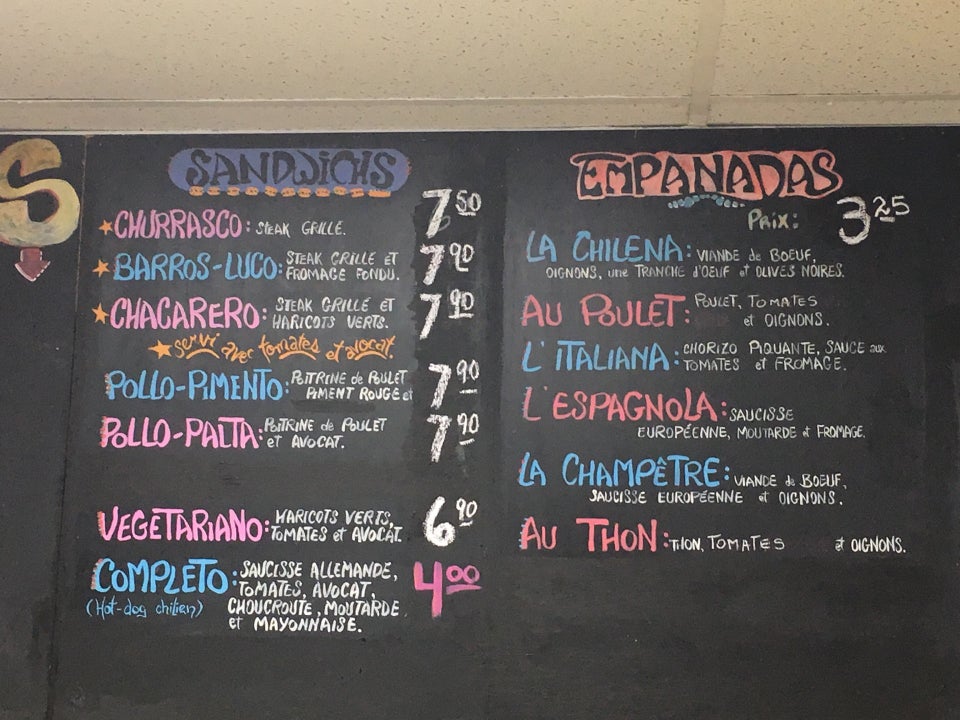 S
SANDWICHS
CHURRASCO: STEAK GRILLÉ. 7 50
BARROS-LUCO: STEAK GRILLE ET 7 90
FROMAGE FONDU.
CHACARERO: STEAK GRILLÉ ET 7 90
HARICOTS VERTS.
servi avec tomates et avocat.
POLLO-PIMENTO: POITRINE de POULET 7 90
PIMENT ROUGE et
POLLO-PALTA: POITRINE de POULET 7 90
et AVOCAT.
VEGETARIANO: HARICOTS VERTS, 6 90
TOMATES et AVOCAT.
COMPLETO: SAUCISSE ALLEMANDE, 4 00
(Hot-dog chilien) TOMATES, AVOCAT,
CHOUCROUTE, MOUTARDE
et MAYONNAISE.
EMPANADAS
PRIX: 3 25
LA CHILENA: VIANDE de BOEUF,
OIGNONS, une TRANCHE d'OEUF et OLIVES NOIRES.
AU POULET: POULET, TOMATES
et OIGNONS.
L'ITALIANA: CHORIZO PIQUANTE, SAUCE aux
TOMATES et FROMAGE.
L'ESPAGNOLA: SAUCISSE
EUROPÉENNE, MOUTARDE et FROMAGE.
LA CHAMPÊTRE: VIANDE de BOEUF,
SAUCISSE EUROPÉENNE et OIGNONS.
AU THON: THON, TOMATES et OIGNONS.